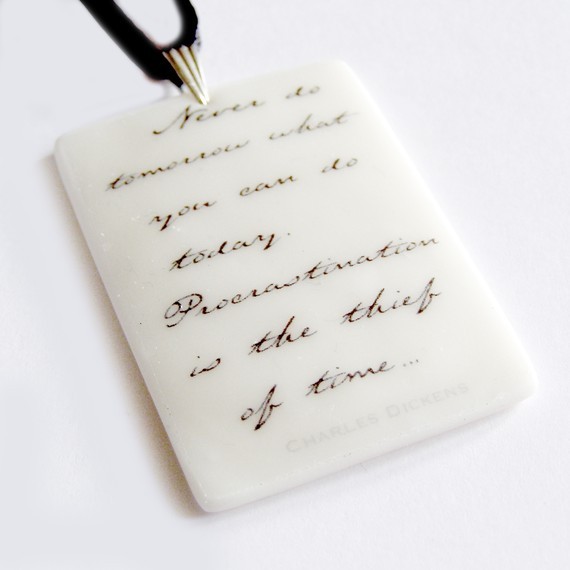 Never do
tomorrow what
you can do
today.
Procrastination
is the thief
of time...
CHARLES DICKENS